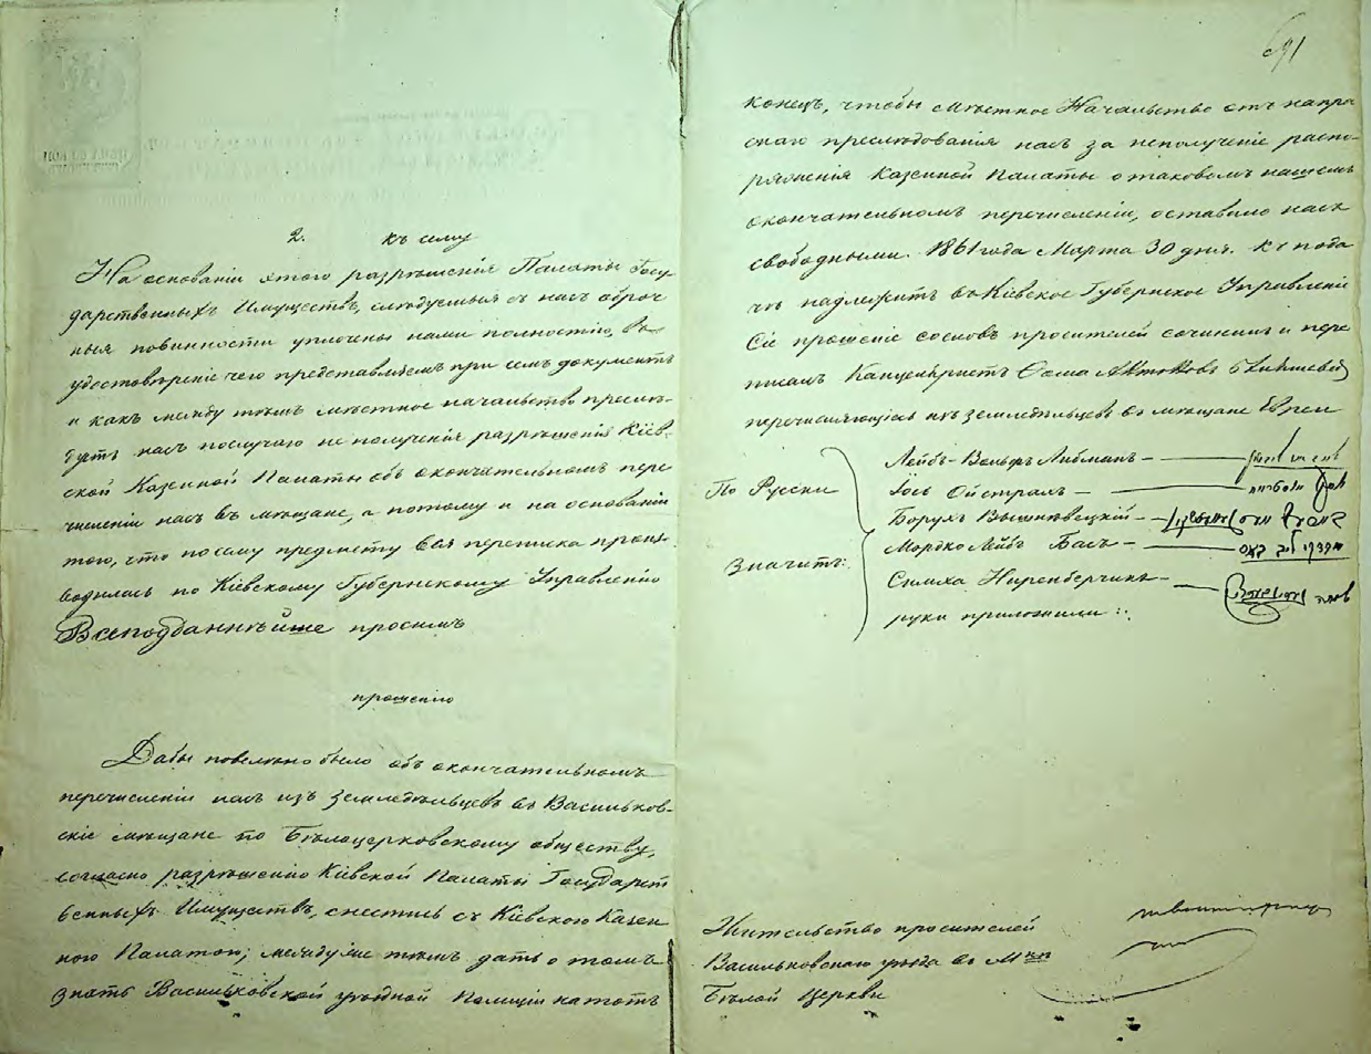 2. къ сему
На основаніи этого разрѣшенія Палаты Госу-
дарственныхъ Имуществъ, слѣдуемыя съ насъ оброч
ныя повинности уплочены нами полностію, въ
удостовѣреніе чего представляемъ при семъ документъ
и какъ между тѣмъ мѣстное начальство преслѣ-
дуетъ насъ по случаю не полученія разрѣшенія Кіев-
ской Казенной Палаты объ окончательномъ пере
численіи насъ въ мѣщане, а потому и на основаніи
того, что по сему предмету вся переписка произ-
водилась по Кіевскому Губернскому Управленію
Всеподданнѣйше просимъ
прошенію
Дабы повелѣно было объ окончательномъ
перечисленіи насъ изъ земледѣльцевъ въ Васильков-
скіе мѣщане по Бѣлоцерковскому обществу,
согласно разрѣшенію Кіевской Палаты Государст
венныхъ Имуществъ, снестись съ Кіевскою Казен
ною Палатою; между же тѣмъ дать о томъ
знать Васильковской уѣздной Полиціи на тотъ
691
конецъ, чтобы мѣстное Начальство отъ напра
снаго преслѣдованія насъ за неполученіе распо-
ряженія Казенной Палаты о таковомъ нашемъ
окончательномъ перечисленіи, оставило насъ
свободными. 1861 года Марта 30 дня. Къ пода
чѣ надлежитъ въ Кіевское Губернское Управленіе
Сіе прошеніе со словъ просителей сочинилъ и пере
писалъ Канцеляристъ Ѳома
перечисляющіеся изъ земледѣльцевъ въ мѣщане Евреи
Лейбъ-Вольфъ Либманъ —
По Русски
Іось Ойстрахъ —
Борухъ Вышневецкій —
Мордко Лейбъ Басъ — מרדכי ליב באס
Значитъ:
Симха Ниренберчикъ — שמחה
руки приложили :.
Жительство просителей
Васильковскаго уѣзда въ М
Бѣлой Церкви